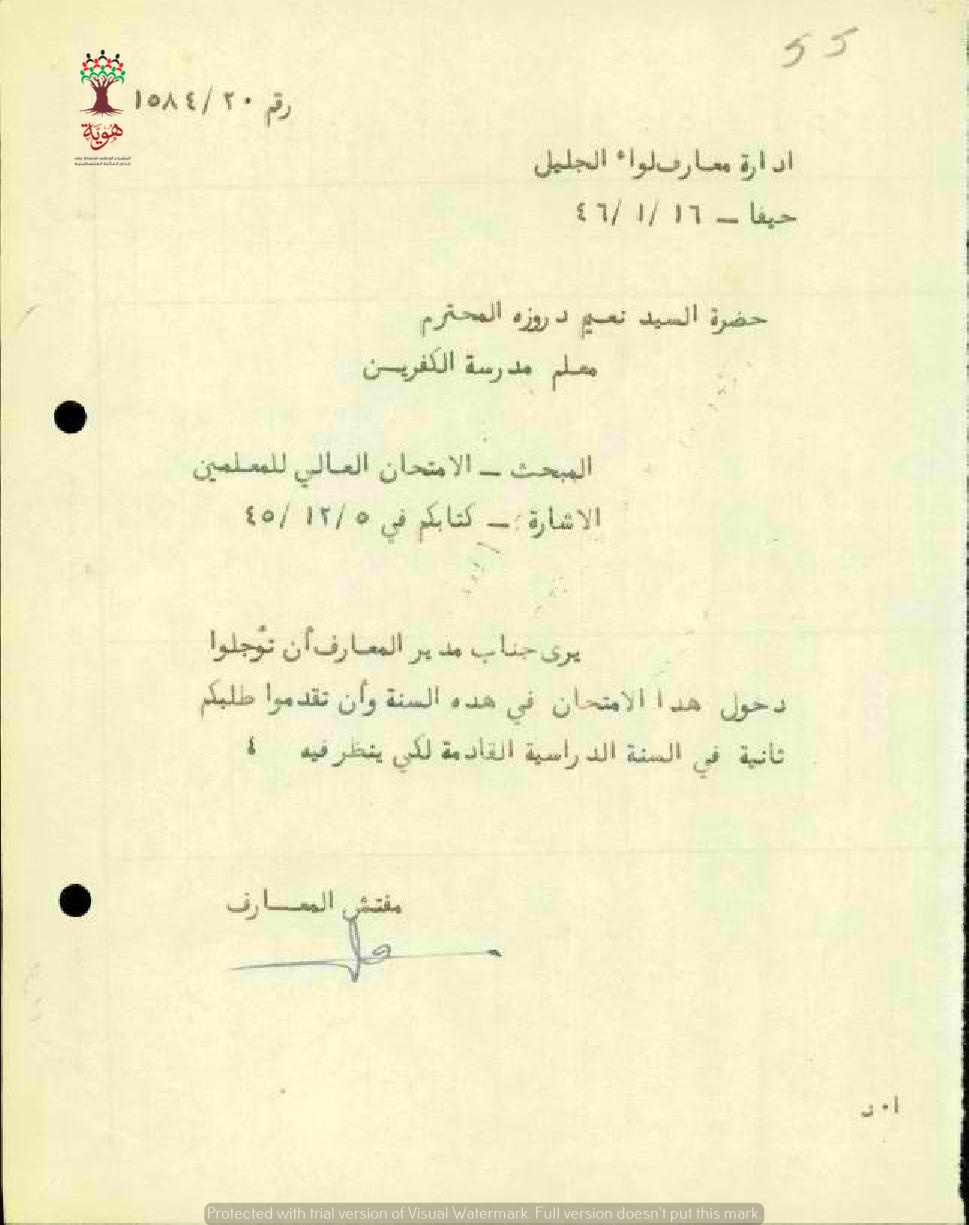 55
هوية
رقم ٢٠ /١٥٨٤
ادارة معارف لواء الجليل
حيفا ــ ١٦ /١ /٤٦
حضرة السيد نعيم دروزه المحترم
معلم مدرسة الكفرين
المبحث ــ الامتحان العالي للمعلمين
الاشارة : ــ كتابكم في ٥ /١٢ /٤٥
يرى جناب مدير المعارف أن تؤجلوا
دخول هذا الامتحان في هذه السنة وأن تقدموا طلبكم
ثانية في السنة الدراسية القادمة لكي ينظر فيه
مفتش المعارف
Protected with trial version of Visual Watermark. Full version doesn't put this mark.